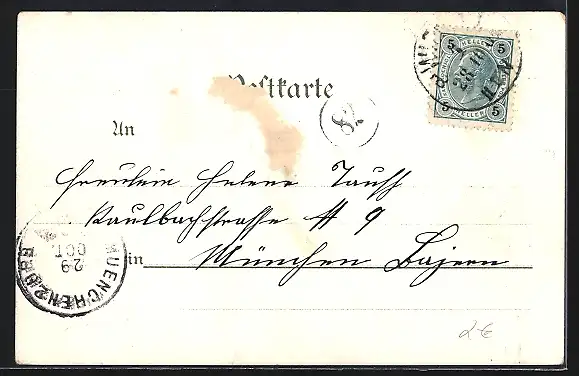 Postkarte
5 HELLER 5
28.10
5 HELLER 5
An
Fräulein Helene Tauss
Kaulbachstrasse # 9
in München Bajern
MUENCHEN 2
29
OCT
2€